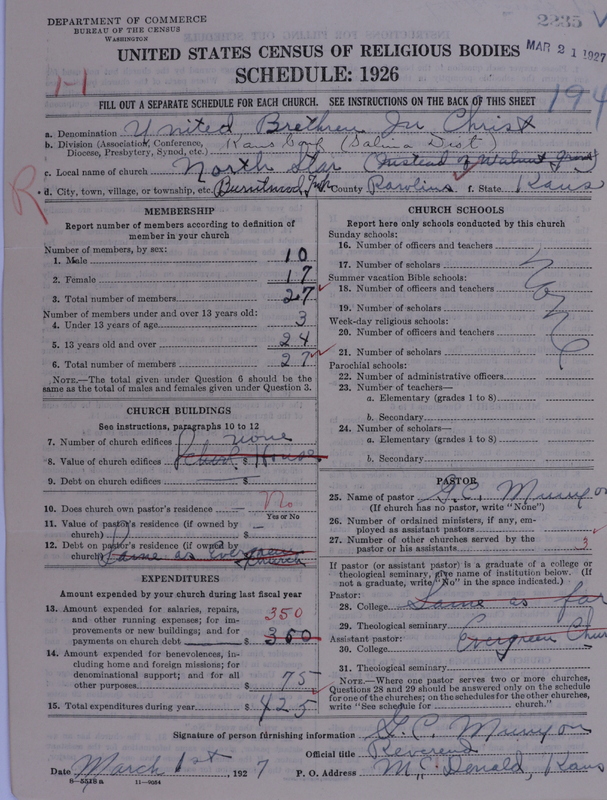 DEPARTMENT OF COMMERCE
BUREAU OF THE CENSUS
WASHINGTON
2235
MAR 21 1927
UNITED STATES CENSUS OF RELIGIOUS BODIES
SCHEDULE: 1926
1-1
194
FILL OUT A SEPARATE SCHEDULE FOR EACH CHURCH. SEE INSTRUCTIONS ON THE BACK OF THIS SHEET
a. Denomination United Brethren In Christ
b. Division (Association, Conference, Diocese, Presbytery, Synod, etc.) Kans Conf (Salina Dist)
c. Local name of church North Star (Instead of Walnut Grove)
R
d. City, town, village, or township, etc. County Rawlins f. State Kans
MEMBERSHIP
Report number of members according to definition of member in your church
Number of members, by sex:
1. Male 10
2. Female 17
3. Total number of members 27
Number of members under and over 13 years old:
4. Under 13 years of age 3
5. 13 years old and over 24
6. Total number of members 27
NOTE.—The total given under Question 6 should be the same as the total of males and females given under Question 3.
CHURCH BUILDINGS
See instructions, paragraphs 10 to 12
7. Number of church edifices none
8. Value of church edifices $ School House
9. Debt on church edifices $
10. Does church own pastor's residence No
Yes or No
11. Value of pastor's residence (if owned by church) $
12. Debt on pastor's residence (if owned by church) Same as evergreen church
EXPENDITURES
Amount expended by your church during last fiscal year
13. Amount expended for salaries, repairs, and other running expenses; for improvements or new buildings; and for payments on church debt $ 350 350
14. Amount expended for benevolences, including home and foreign missions; for denominational support; and for all other purposes $ 75
15. Total expenditures during year $ 425
CHURCH SCHOOLS
Report here only schools conducted by this church
Sunday schools:
16. Number of officers and teachers
17. Number of scholars
Summer vacation Bible schools:
18. Number of officers and teachers
19. Number of scholars
Week-day religious schools:
20. Number of officers and teachers
21. Number of scholars
None
Parochial schools:
22. Number of administrative officers
23. Number of teachers—
a. Elementary (grades 1 to 8)
b. Secondary
24. Number of scholars—
a. Elementary (grades 1 to 8)
b. Secondary
PASTOR
25. Name of pastor G. C. Munyon
(If church has no pastor, write "None")
26. Number of ordained ministers, if any, employed as assistant pastors
27. Number of other churches served by the pastor or his assistants 3
If pastor (or assistant pastor) is a graduate of a college or theological seminary, give name of institution below. (If not a graduate, write "No" in the space indicated.)
Pastor:
28. College Same as for
29. Theological seminary Evergreen Church
Assistant pastor:
30. College
31. Theological seminary
NOTE.—Where one pastor serves two or more churches, Questions 28 and 29 should be answered only on the schedule for one of the churches; on the schedules for the other churches, write "See schedule for church."
Signature of person furnishing information G. C. Munyon
Official title Reverend
Date March 1st, 1927 P. O. Address McDonald, Kans
8—5518a 11—9054